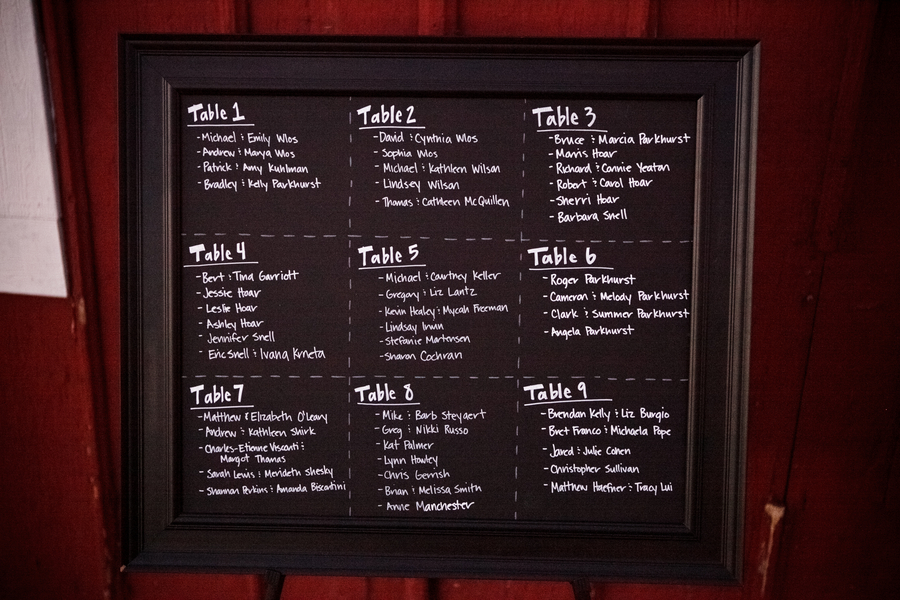 Table 1
- Michael & Emily Wos
- Andrew & Marya Wos
- Patrick & Amy Kuhlman
- Bradley & Kelly Parkhurst
Table 2
- David & Cynthia Wos
- Sophia Wos
- Michael & Kathleen Wilson
- Lindsey Wilson
- Thomas & Cathleen McQuillen
Table 3
- Bruce & Marcia Parkhurst
- Morris Hoar
- Richard & Connie Yeatan
- Robert & Carol Hoar
- Sherri Hoar
- Barbara Snell
Table 4
- Bert & Tina Garriott
- Jessie Hoar
- Leslie Hoar
- Ashley Hoar
- Jennifer Snell
- Eric Snell & Ivana Krneta
Table 5
- Michael & Courtney Keller
- Gregory & Liz Lantz
- Kevin Healey & Mycah Freeman
- Lindsay
- Stefanie Mortensen
- Sharon Cochran
Table 6
- Roger Parkhurst
- Cameron & Melody Parkhurst
- Clark & Summer Parkhurst
- Angela Parkhurst
Table 7
- Matthew & Elizabeth O'Leary
- Andrew & Kathleen Shirk
- Charles-Etienne Visconti &
Margot Thomas
- Sarah Lewis & Merideth Shesky
- Shannon Perkins & Amanda Biscardini
Table 8
- Mike & Barb Steyaert
- Greg & Nikki Russo
- Kat Palmer
- Lynn Howley
- Chris Gerrish
- Brian & Melissa Smith
- Anne Manchester
Table 9
- Brendan Kelly & Liz Burgio
- Bret Franco & Michaela Pape
- Jared & Julie Cohen
- Christopher Sullivan
- Matthew Haefner & Tracy Lui